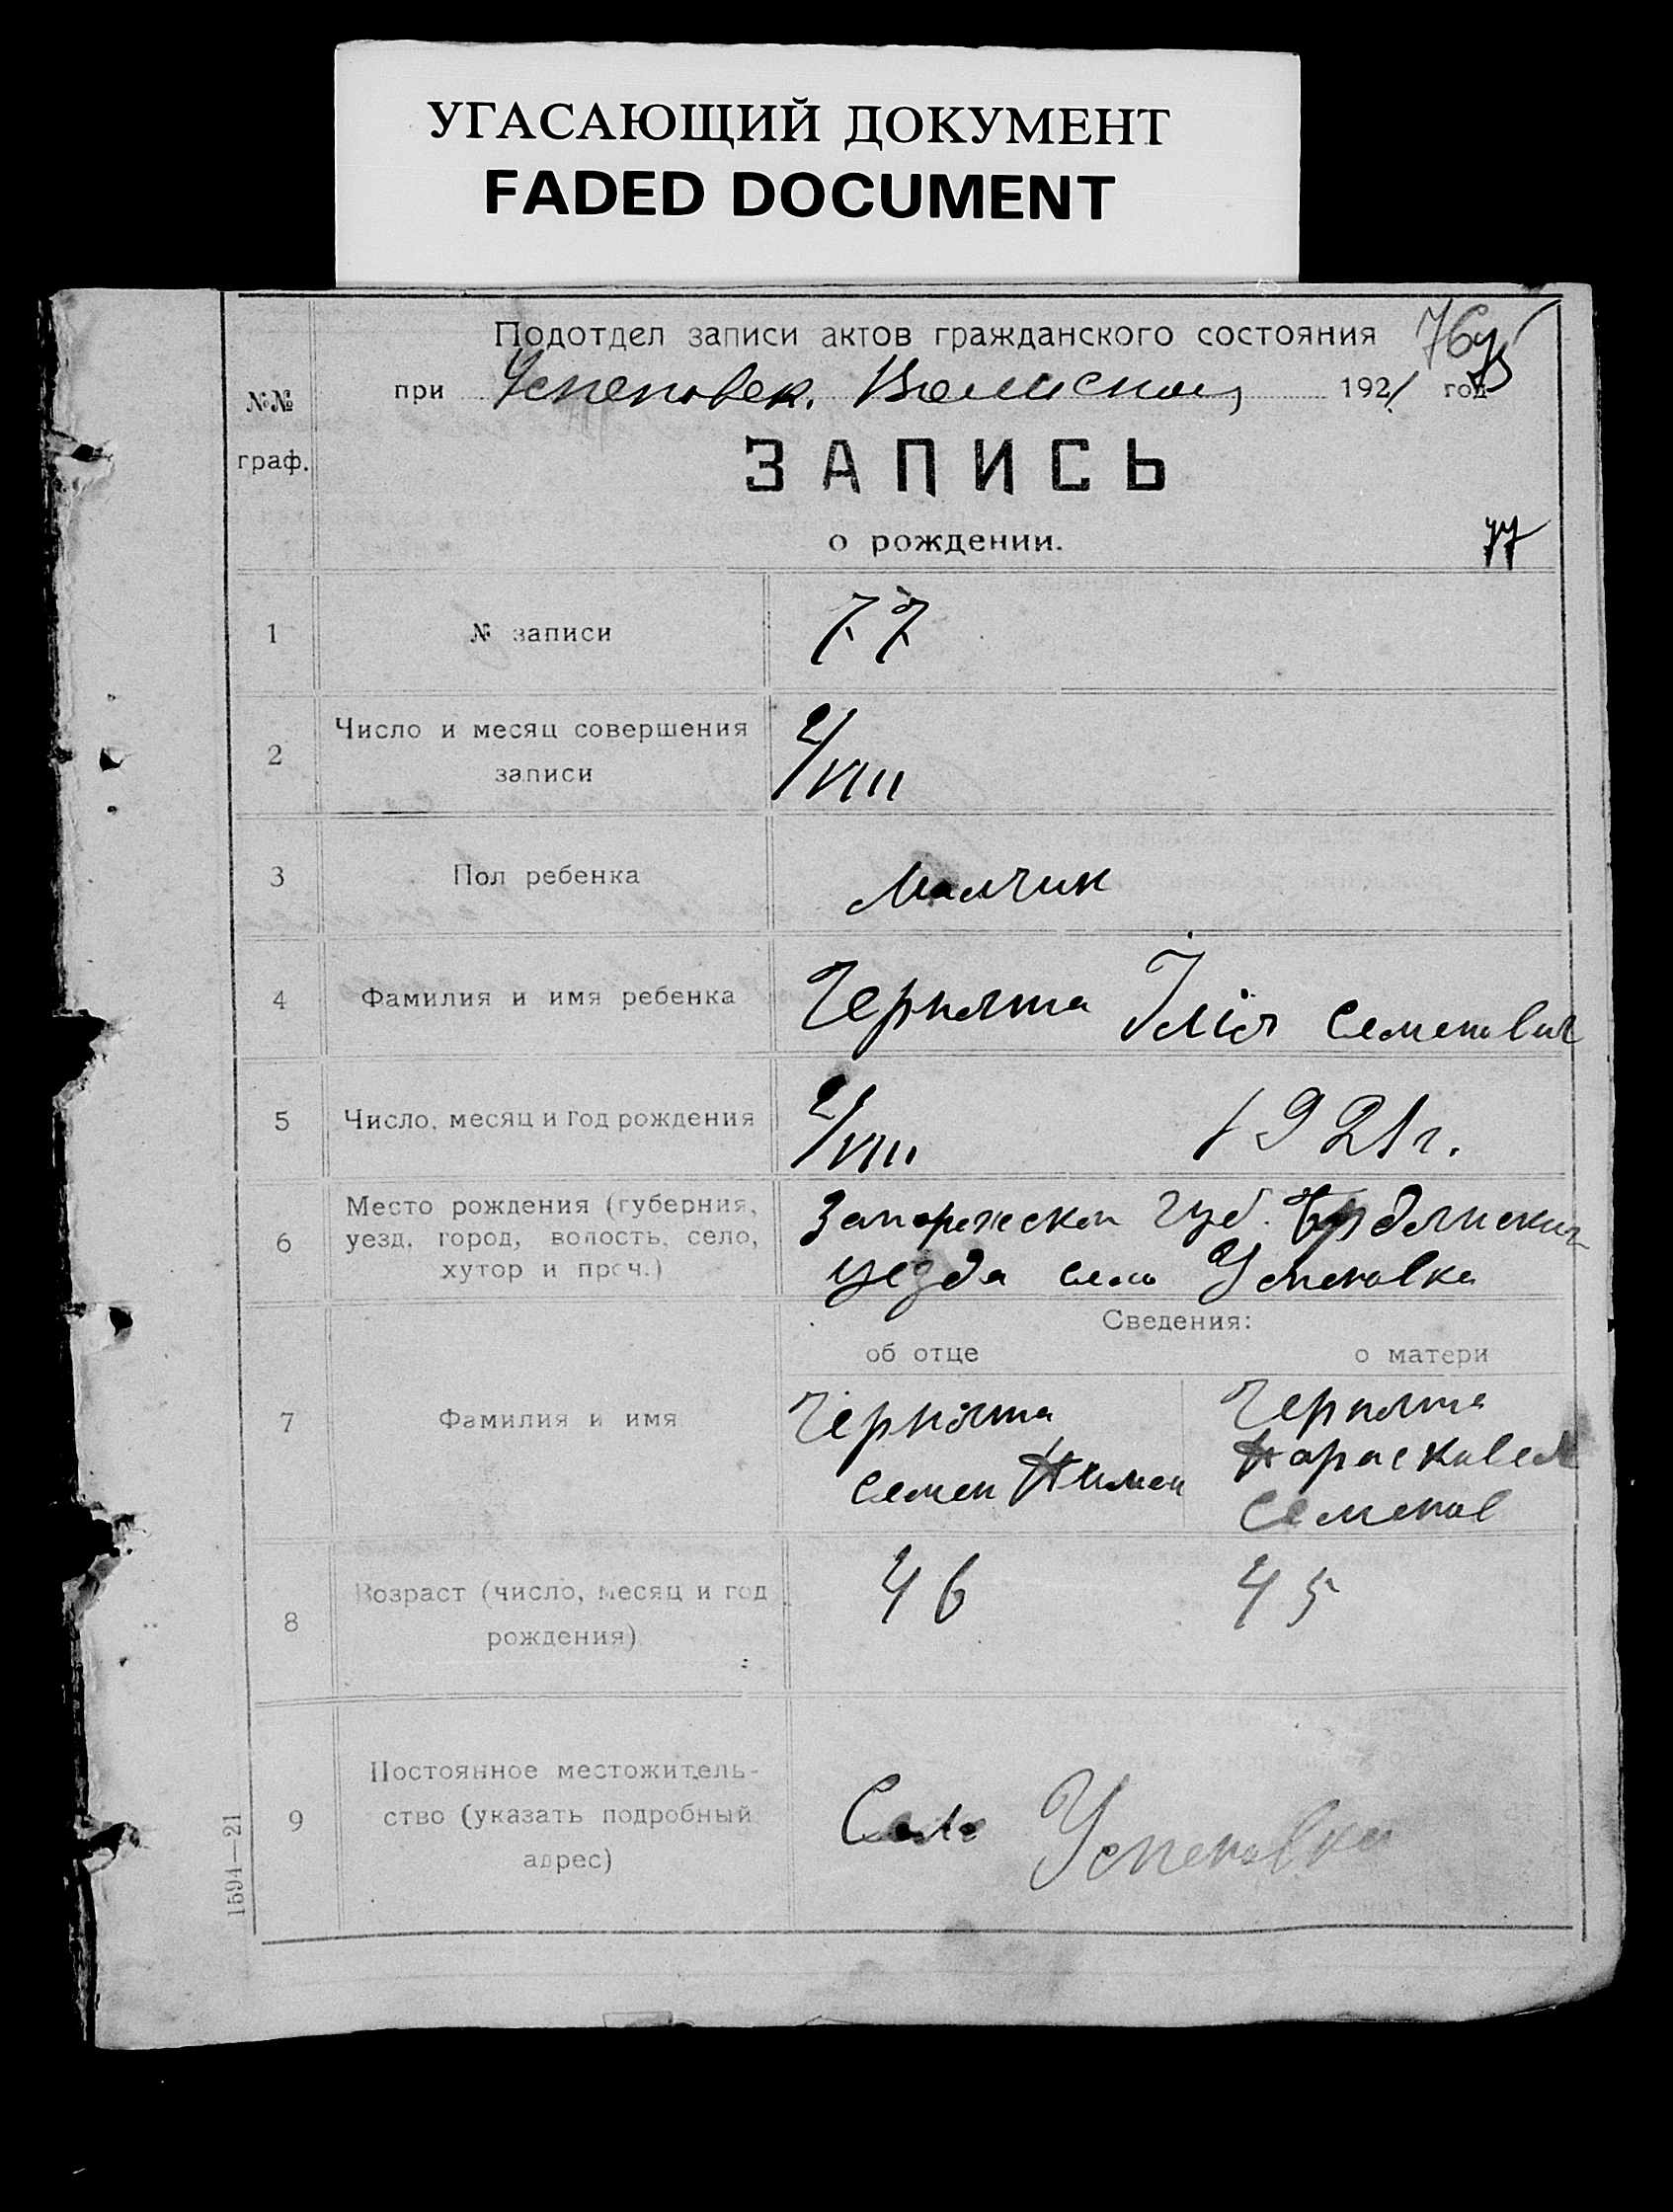 УГАСАЮЩИЙ ДОКУМЕНТ
FADED DOCUMENT
Подотдел записи актов гражданского состояния
при Успеновск. 1921 год
№№ граф.
ЗАПИСЬ
о рождении.
77
1 № записи 77
2 Число и месяц совершения
записи 2/VIII
3 Пол ребенка Малчик
4 Фамилия и имя ребенка Чернята Iлія Семенович
5 Число, месяц и год рождения 2/VIII 1921 г.
6 Место рождения (губерния,
уезд, город, волость, село,
хутор и проч.)
Запорожской губ. Бердянского
уезда село Успеновка
Сведения:
об отце о матери
7 Фамилия и имя
Чернята
Семен Пимен
Чернята
Параскавея
Семенов
8 Возраст (число, месяц и год
рождения)
46 45
9 Постоянное местожитель-
ство (указать подробный
адрес)
Село Успеновка
1594—21